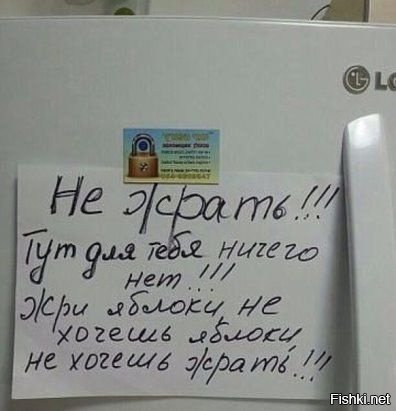 LG
Не жрать!!!
Тут для тебя ничего
нет!!!
Жри яблоки, не
хочешь яблоки,
не хочешь жрать!!!
Fishki.net